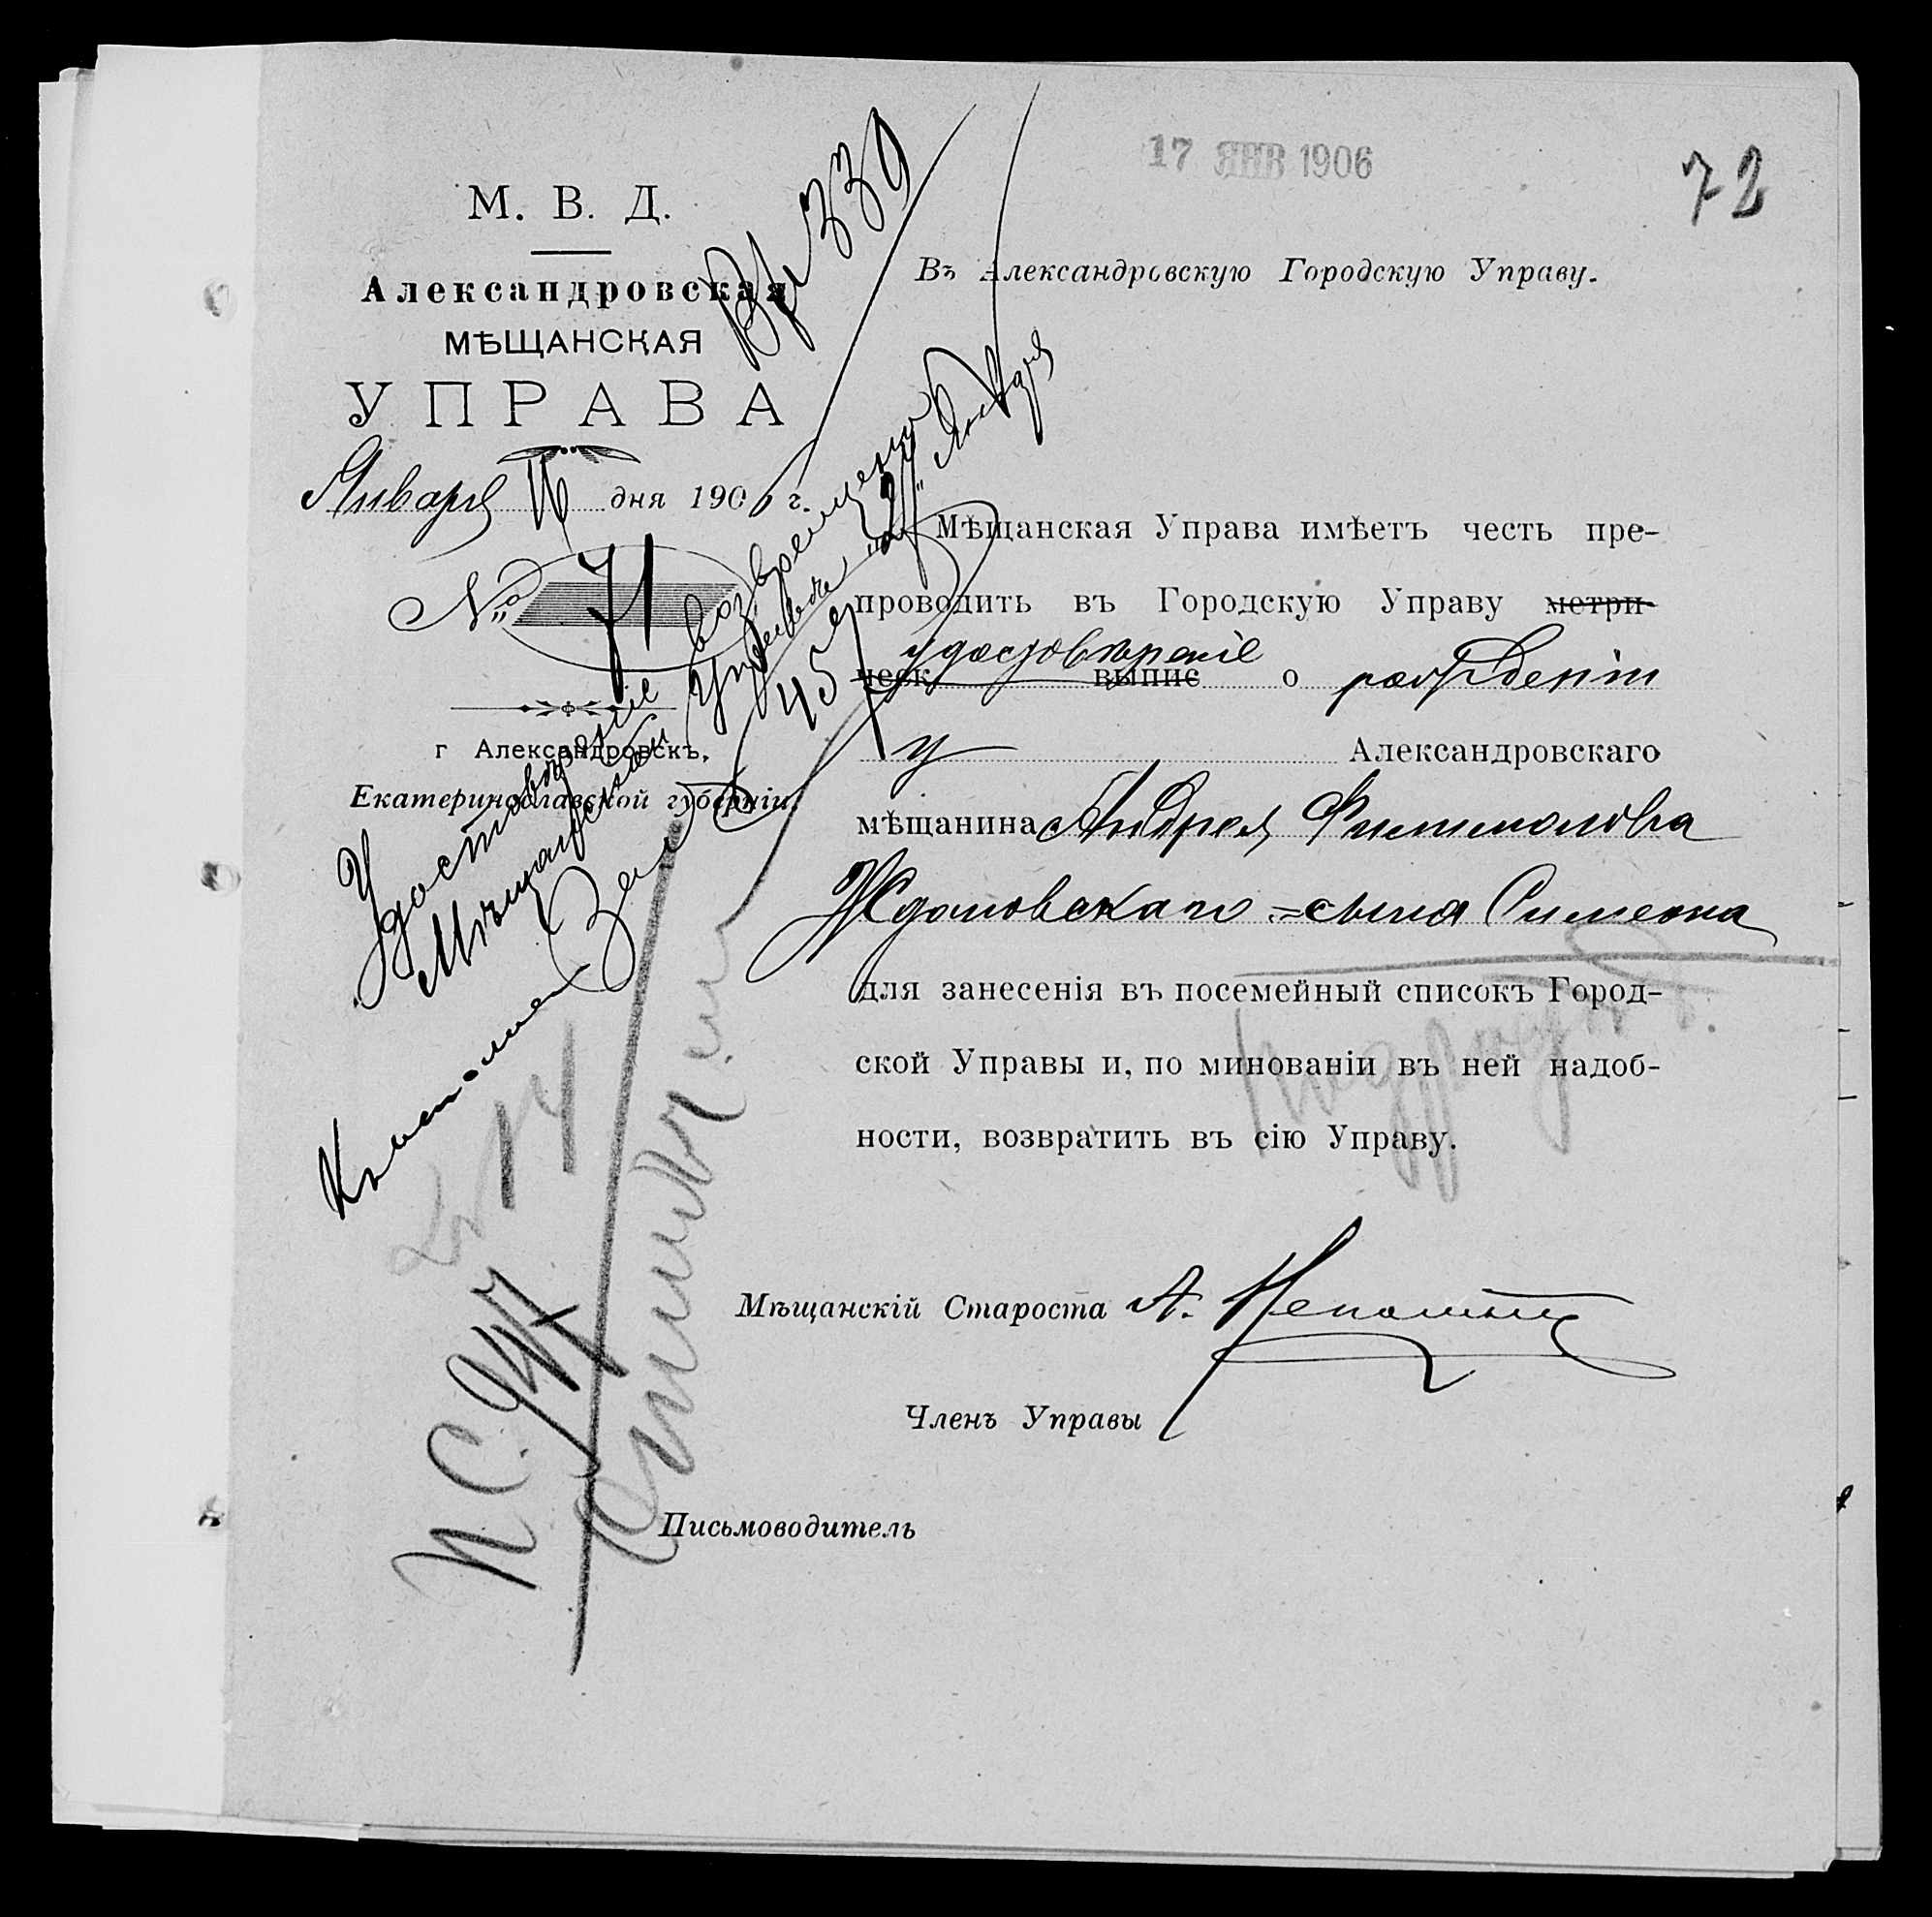 17 ЯНВ 1906
72
М. В. Д.
Александровская
МѢЩАНСКАЯ
УПРАВА
Января 16 дня 1906 г.
№ 71
г Александровскъ,
Екатеринославской губерніи.
Вх 339
Въ Александровскую Городскую Управу.
Мѣщанская Управа имѣетъ честь пре-
проводить въ Городскую Управу метри-
удостовѣреніе
ческ выпис о рожденіи
у Александровскаго
мѣщанина Андрея Филимонова
Ждановскаго = сына Симеона
для занесенія въ посемейный списокъ Город-
ской Управы и, по минованіи въ ней надоб-
ности, возвратить въ сію Управу.
Удостовѣреніе возвращено
Мѣщанской Управѣ Января
457
14
Мѣщанскій Староста А.
Членъ Управы
Письмоводитель